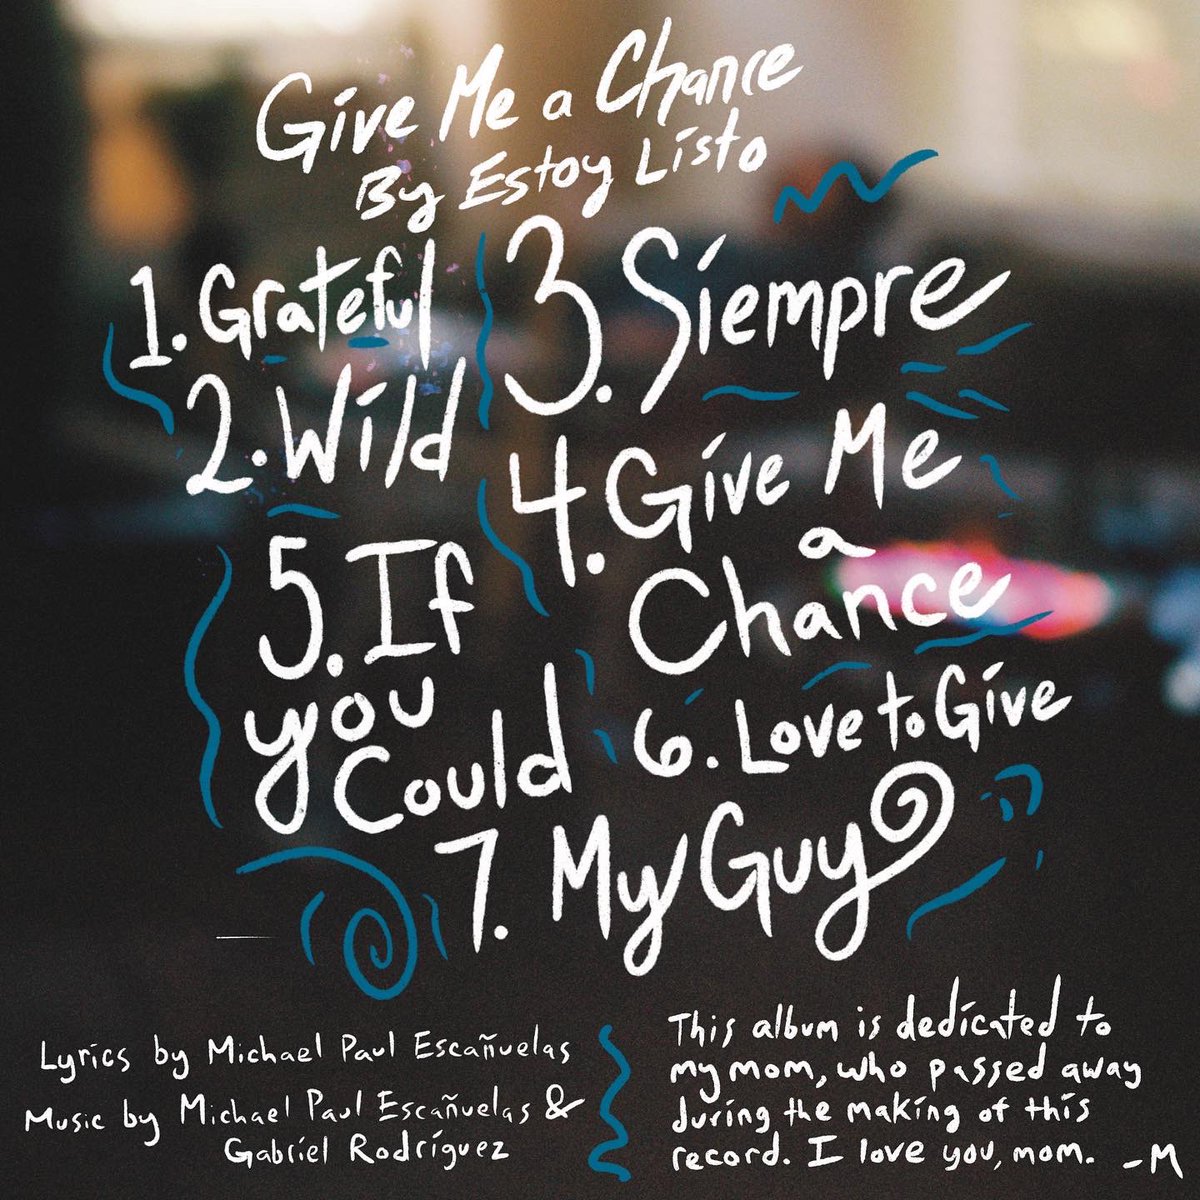 Give Me a Chance
By Estoy Listo
1. Grateful
2. Wild
3. Siempre
4. Give Me
a
Chance
5. If
you
Could
6. Love to Give
7. My Guy
Lyrics by Michael Paul Escañuelas
Music by Michael Paul Escañuelas &
Gabriel Rodríguez
This album is dedicated to
my mom, who passed away
during the making of this
record. I love you, mom. -M